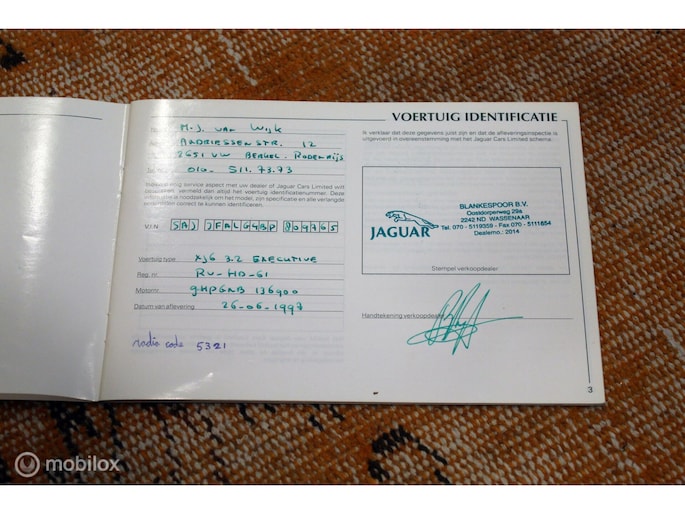 VOERTUIG IDENTIFICATIE
M.J. van Wijk
ANDRIESSENSTR. 12
2651 VW BERKEL-RODENRIJS
010 - 511.73.73
service aspect met uw dealer of Jaguar Cars Limited wilt
vermeld dan altijd het voertuig identificatienummer. Deze
informatie is noodzakelijk om het model, zijn specificatie en alle verlangde
correct te kunnen identificeren.
V.I.N. SAJ JFALG4BP 809765
Voertuig type XJ6 3.2 EXECUTIVE
Reg. nr. RV-HD-61
Motornr. 9HPGNB 136900
Datum van aflevering 26-06-1997
radio code 5321
Ik verklaar dat deze gegevens juist zijn en dat de afleveringsinspectie is
uitgevoerd in overeenstemming met het Jaguar Cars Limited schema.
JAGUAR
BLANKESPOOR B.V.
Oostdorperweg 29a
2242 ND WASSENAAR
Tel. 070 - 5119359 - Fax 070 - 5111654
Dealerno.: 2014
Stempel verkoopdealer
Handtekening verkoopdealer
3
mobilox